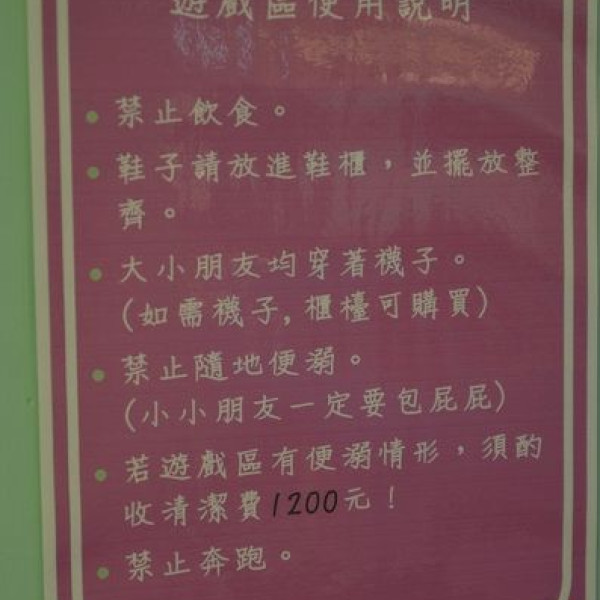 遊戲區使用說明
禁止飲食。
鞋子請放進鞋櫃，並擺放整
齊。
大小朋友均穿著襪子。
(如需襪子,櫃檯可購買)
禁止隨地便溺。
(小小朋友一定要包屁屁)
若遊戲區有便溺情形，須酌
收清潔費1200元！
禁止奔跑。